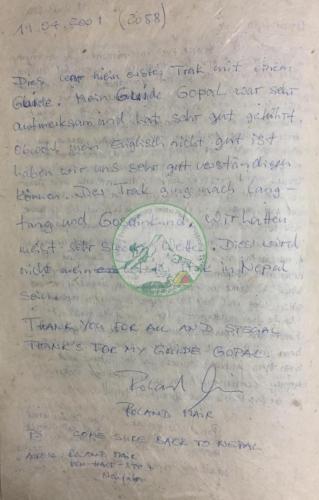 11.04.2001 (2058)
Dies war mein erster Trak mit einem
Guide. Mein Guide Gopal war sehr
aufmerksam und hat sehr gut geführt.
Obwohl mein Englisch nicht gut ist
haben wir uns sehr gut verständigen
können. Der Trak ging nach Lang
tang und Gosainkund. Wir hatten
meist sehr Wetter. Dies wird
nicht mein Trak in Nepal
sein.
THANK YOU FOR ALL AND SPECIAL
THANK'S FOR MY GUIDE GOPAL.
Roland
ROLAND MAIR
PS SOME SURE BACK TO NEPAL
ROLAND MAIR